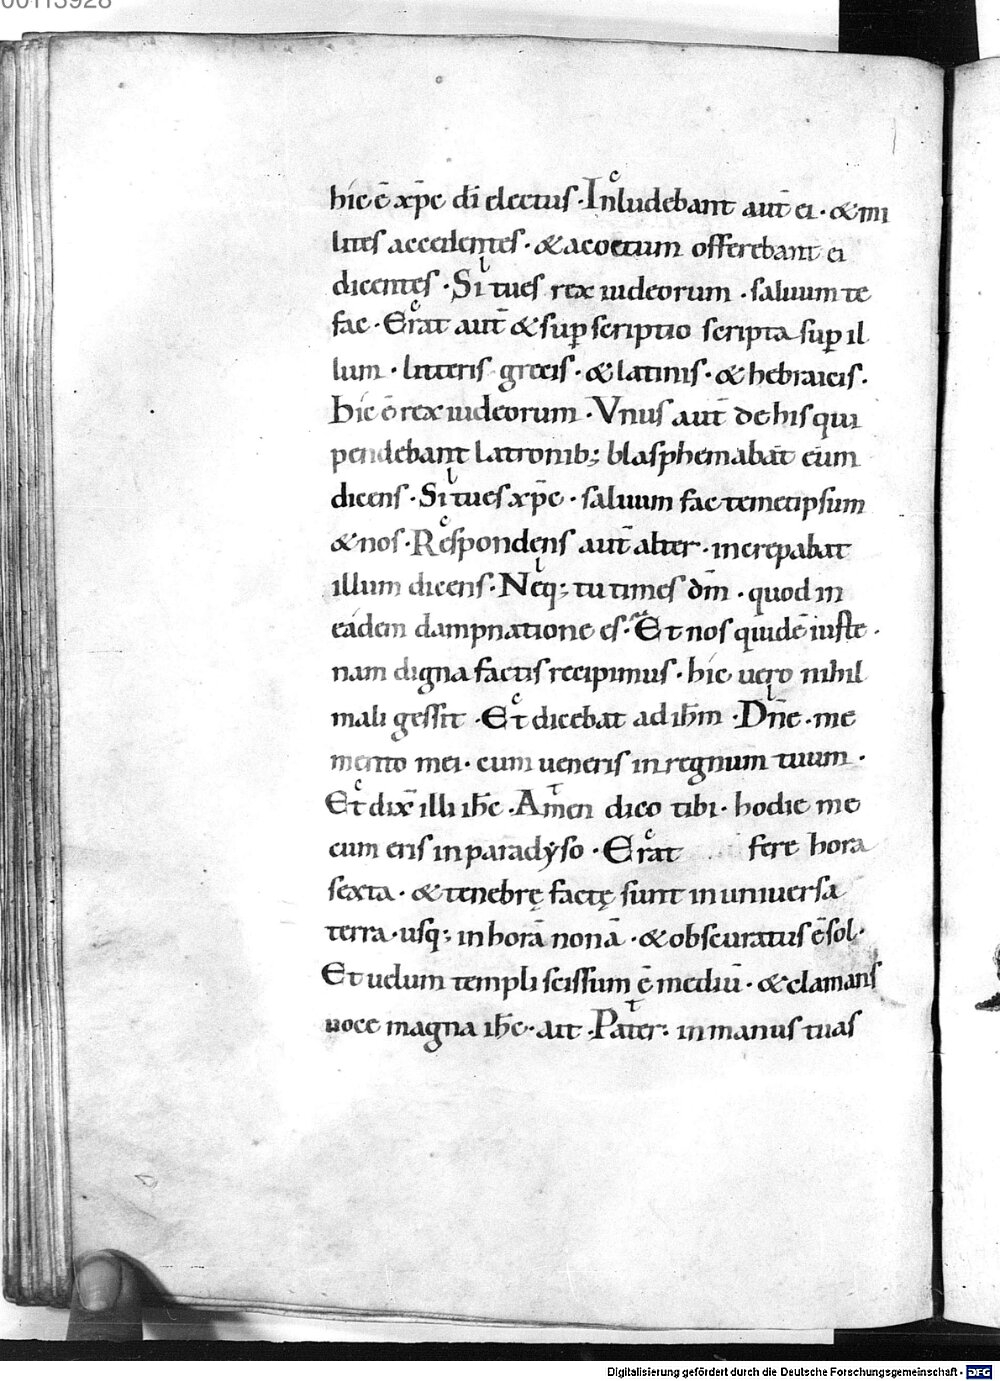 00113928
hic ē xp̄c dī electus · Inludebant aut̄ ei · & mi
lites accedentes · & acoetum offerebant ei
dicentes · Si tu es rex iudeorum · saluum te
fac · Erat aut̄ & sup̱ scriptio scripta sup̱ il
lum · litteris grecis · & latinis · & hebraicis ·
hic ē rex iudeorum · Vnus aut̄ de his qui
pendebant latronib; blasphemabāt eum
dicens · Si tu es xp̄c · saluum fac temetipsum
& nos · Respondens aut̄ alter · increpabat
illum dicens · Neq; tu times dm̄ · quod in
eadem dampnatione es · Et nos quidē iuste ·
nam digna factis recipimus · hic uero nihil
mali gessit · Et dicebat ad ihm̄ · Dn̄e · me
mento mei · cum ueneris in regnum tuum ·
Et dix̄ illi ihc̄ · Amen dico tibi · hodie me
cum eris in paradyso · Erat fere hora
sexta · & tenebrę factę sunt in uniuersa
terra · usq; in horā nonā · & obscuratus ē sol ·
Et uelum templi scissum ē mediū · & clamans
uoce magna ihc̄ · ait · Pater : in manus tuas
Digitalisierung gefördert durch die Deutsche Forschungsgemeinschaft - DFG